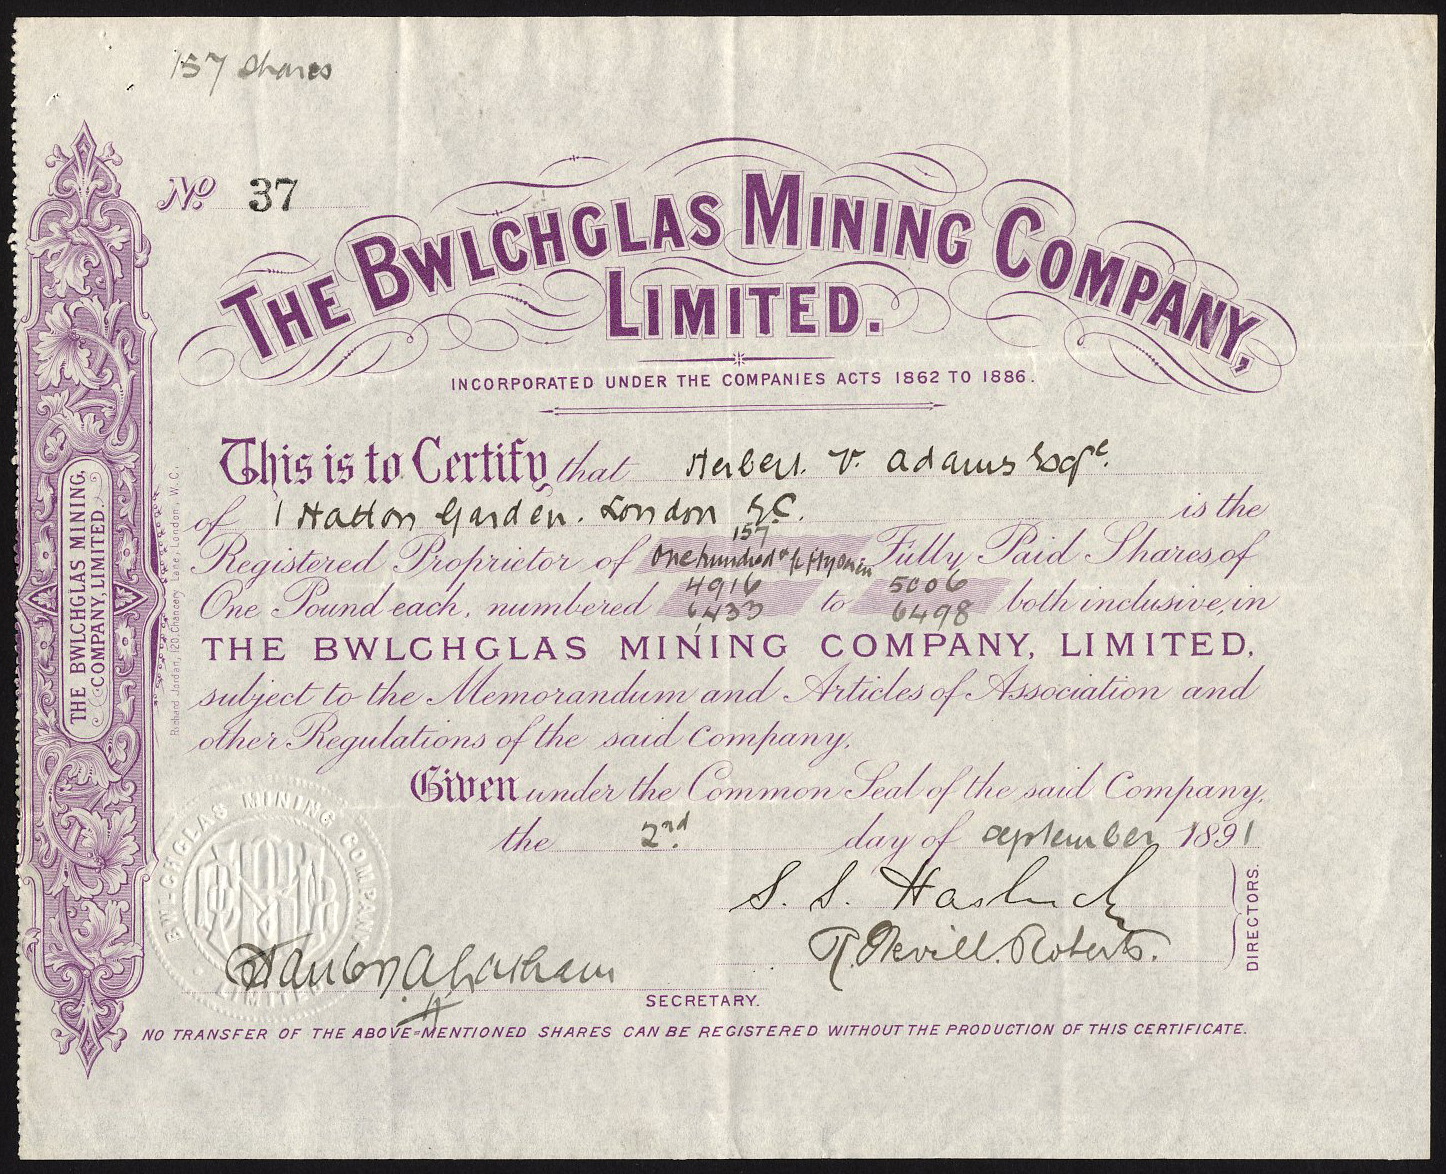 157 Shares
No. 37
THE BWLCHGLAS MINING COMPANY,
LIMITED.
INCORPORATED UNDER THE COMPANIES ACTS 1862 TO 1886.
This is to Certify that Herbert. V. Adams Esqre.
of 1 Hatton Garden. London E.C. is the
157
Registered Proprietor of One hundred & fifty seven Fully Paid Shares of
4916 5006
One Pound each, numbered 6433 to 6498 both inclusive, in
THE BWLCHGLAS MINING COMPANY, LIMITED,
subject to the Memorandum and Articles of Association and
other Regulations of the said Company.
Given under the Common Seal of the said Company,
the 2nd day of September 1891
S. S. Hasluck
R. Nevill. Roberts.
DIRECTORS.
SECRETARY.
NO TRANSFER OF THE ABOVE=MENTIONED SHARES CAN BE REGISTERED WITHOUT THE PRODUCTION OF THIS CERTIFICATE.
THE BWLCHGLAS MINING
COMPANY, LIMITED.
Richard Jordan, 120, Chancery Lane, London, W.C.
BWLCHGLAS MINING COMPANY
LIMITED